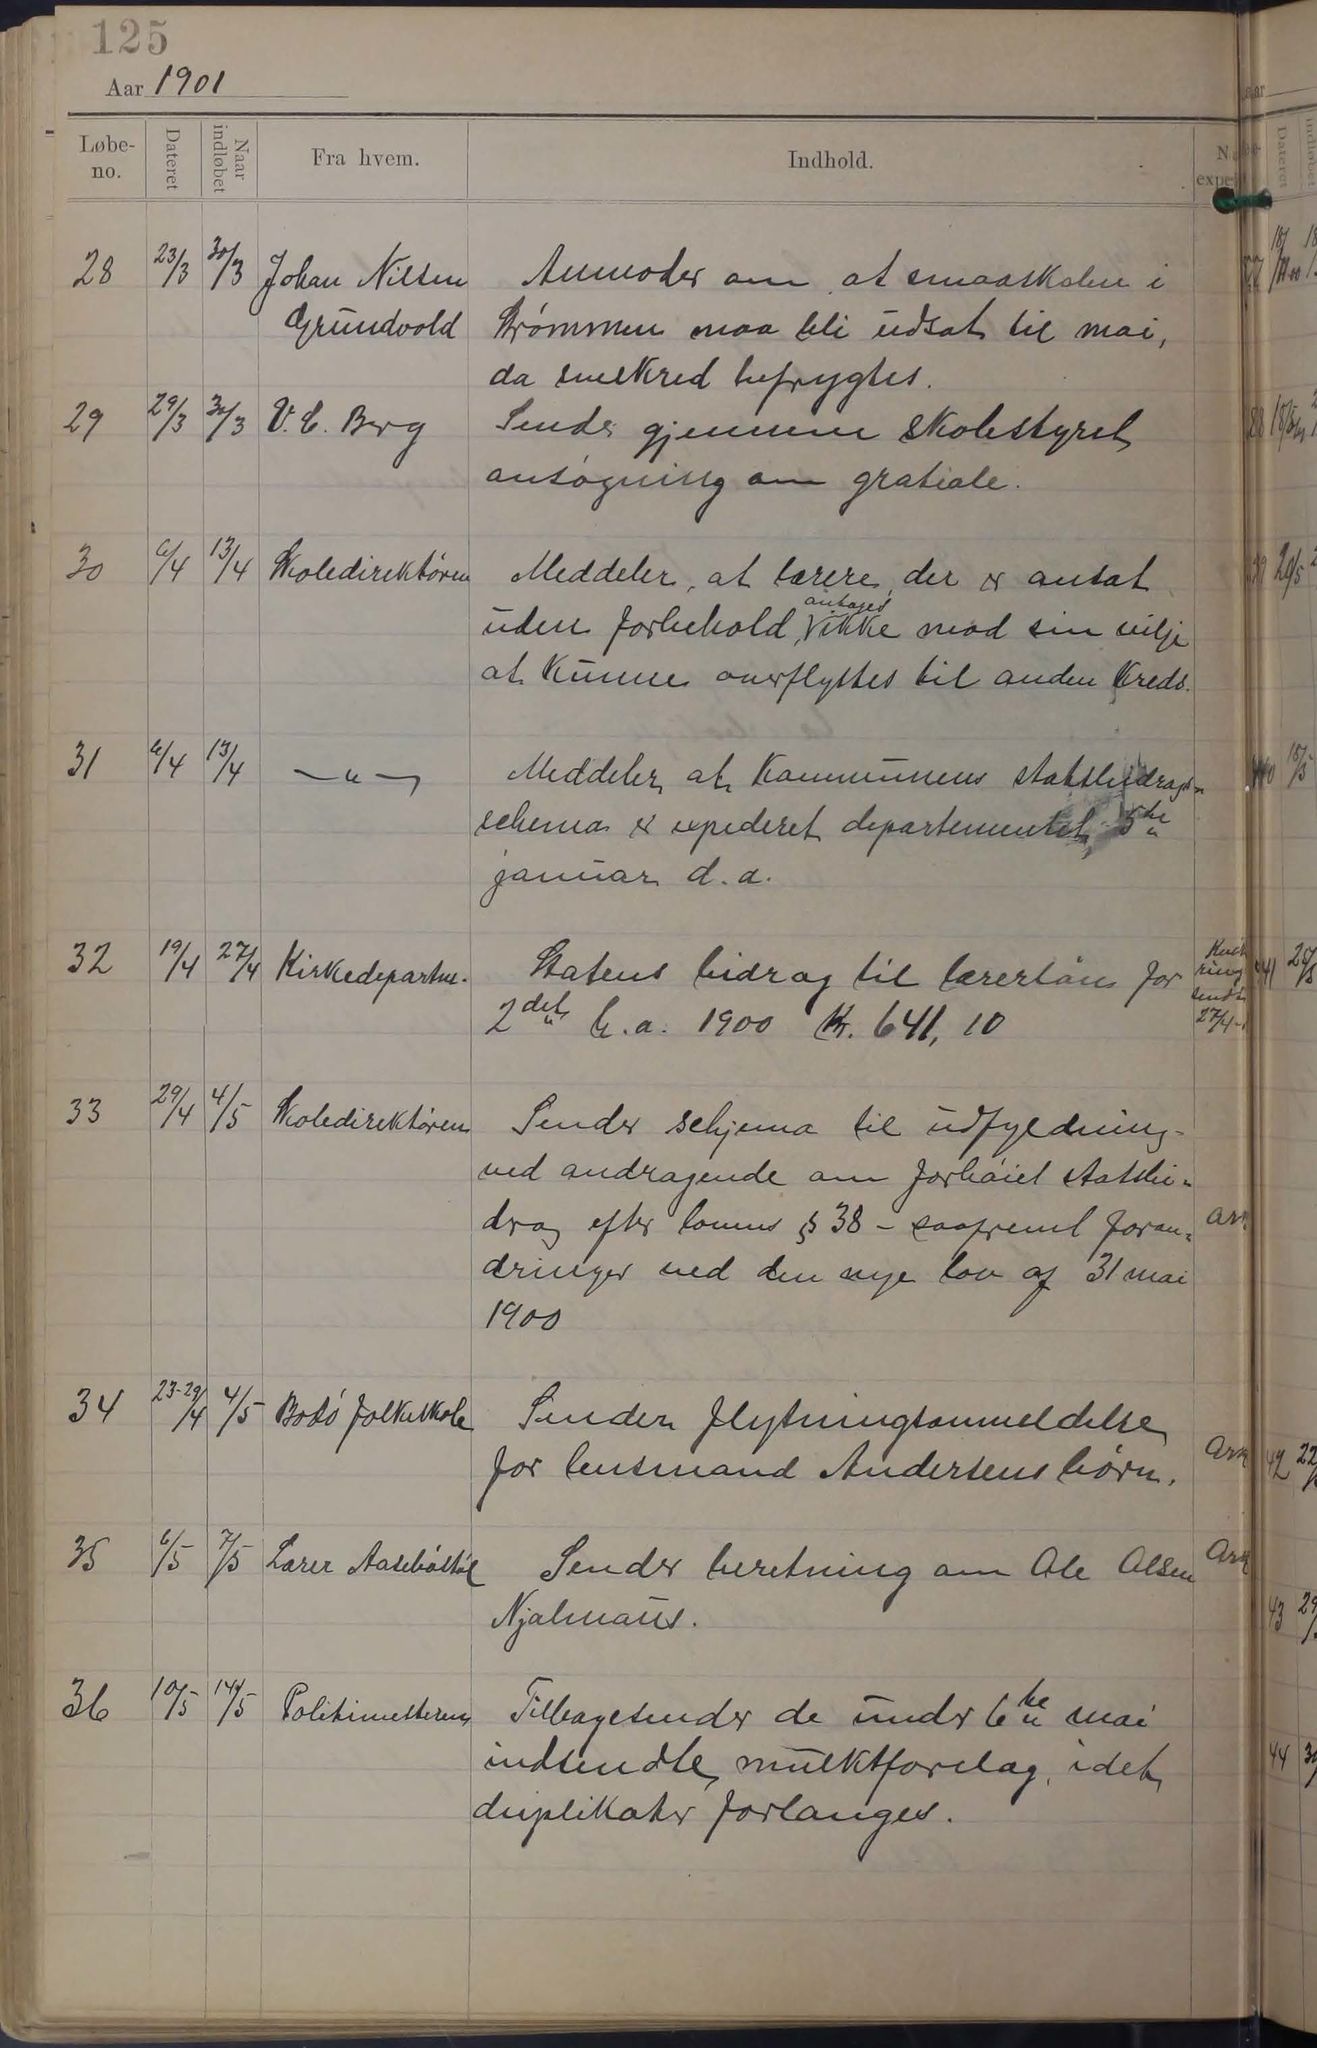 125
Aar 1901
Løbe-no. Dateret Naar indløbet Fra hvem. Indhold.
28 23/3 30/3 Johan Nilsen Anmoder om at smaaskolen i
Grundvold Strømmen maa bli udsat til mai,
da sneskred befrygtes.
29 29/3 30/3 V. C. Berg Sender gjennem skolestyret
ansøgning om gratiale.
30 6/4 13/4 Skoledirektøren Meddeler, at lærere, der er ansat
antages
uden forbehold, ikke mod sin vilje
at kunne overflyttes til anden kreds.
31 6/4 13/4 —"— Meddeler at kommunens statsbidrags-
schema er expederet departementet 5te
januar d. a.
32 19/4 27/4 Kirkedepartm. Statens bidrag til lærerløn for
2det h. a. 1900 Kr. 641,10
Kvit
ring
sendt
27/4
33 29/4 4/5 Skoledirektøren Sender schjema til udfyldning
ved andragende om forhøiet statsbi-
drag efter lovens § 38 – saafremt foran- Ark
dringer ved den nye lov af 31 mai
1900
34 23-29/4 4/5 Bodø folkeskole Sender flytningsanmeldelse
for lensmand Andersens børn. Ark
35 6/5 7/5 Lærer Aasebøstøl Sender beretning om Ole Olsen Ark
Njalmaus.
36 10/5 14/5 Politimesteren Tilbagesender de under 6te mai
indsendte mulktforelag, idet
duplikater forlanges.